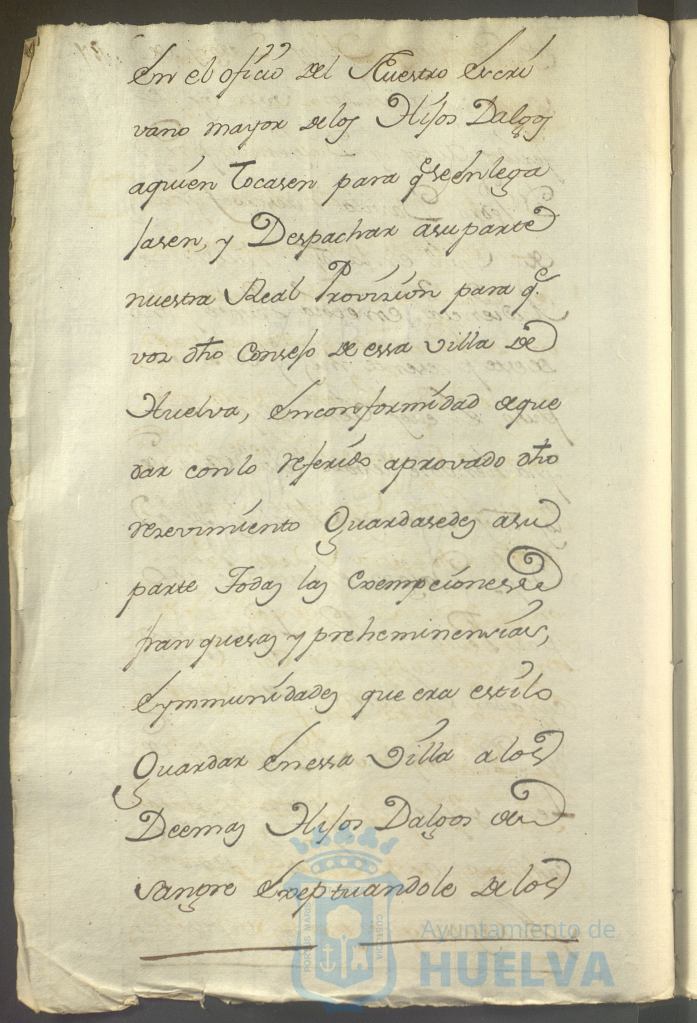 En el ofiçio del Nuestro Escri
vano mayor de los Hijos Dalgos
aquien tocasen para q̃ se en lega
jasen, y Despachar asu parte
nuestra Real Provision para q̃
vos dho Consejo de essa villa de
Huelva, en conformidad de que
dar con lo referido aprovado dho
rezevimiento Guardasedes asu
parte Todas las exempciones
franquesas y preheminensias,
e ymmunidades que era estilo
Guardar en essa Villa a los
Deemas Hijos Dalgos de
sangre exeptuandole de los
PORTUS MARIS
CUSTODIA
Ayuntamiento de
HUELVA